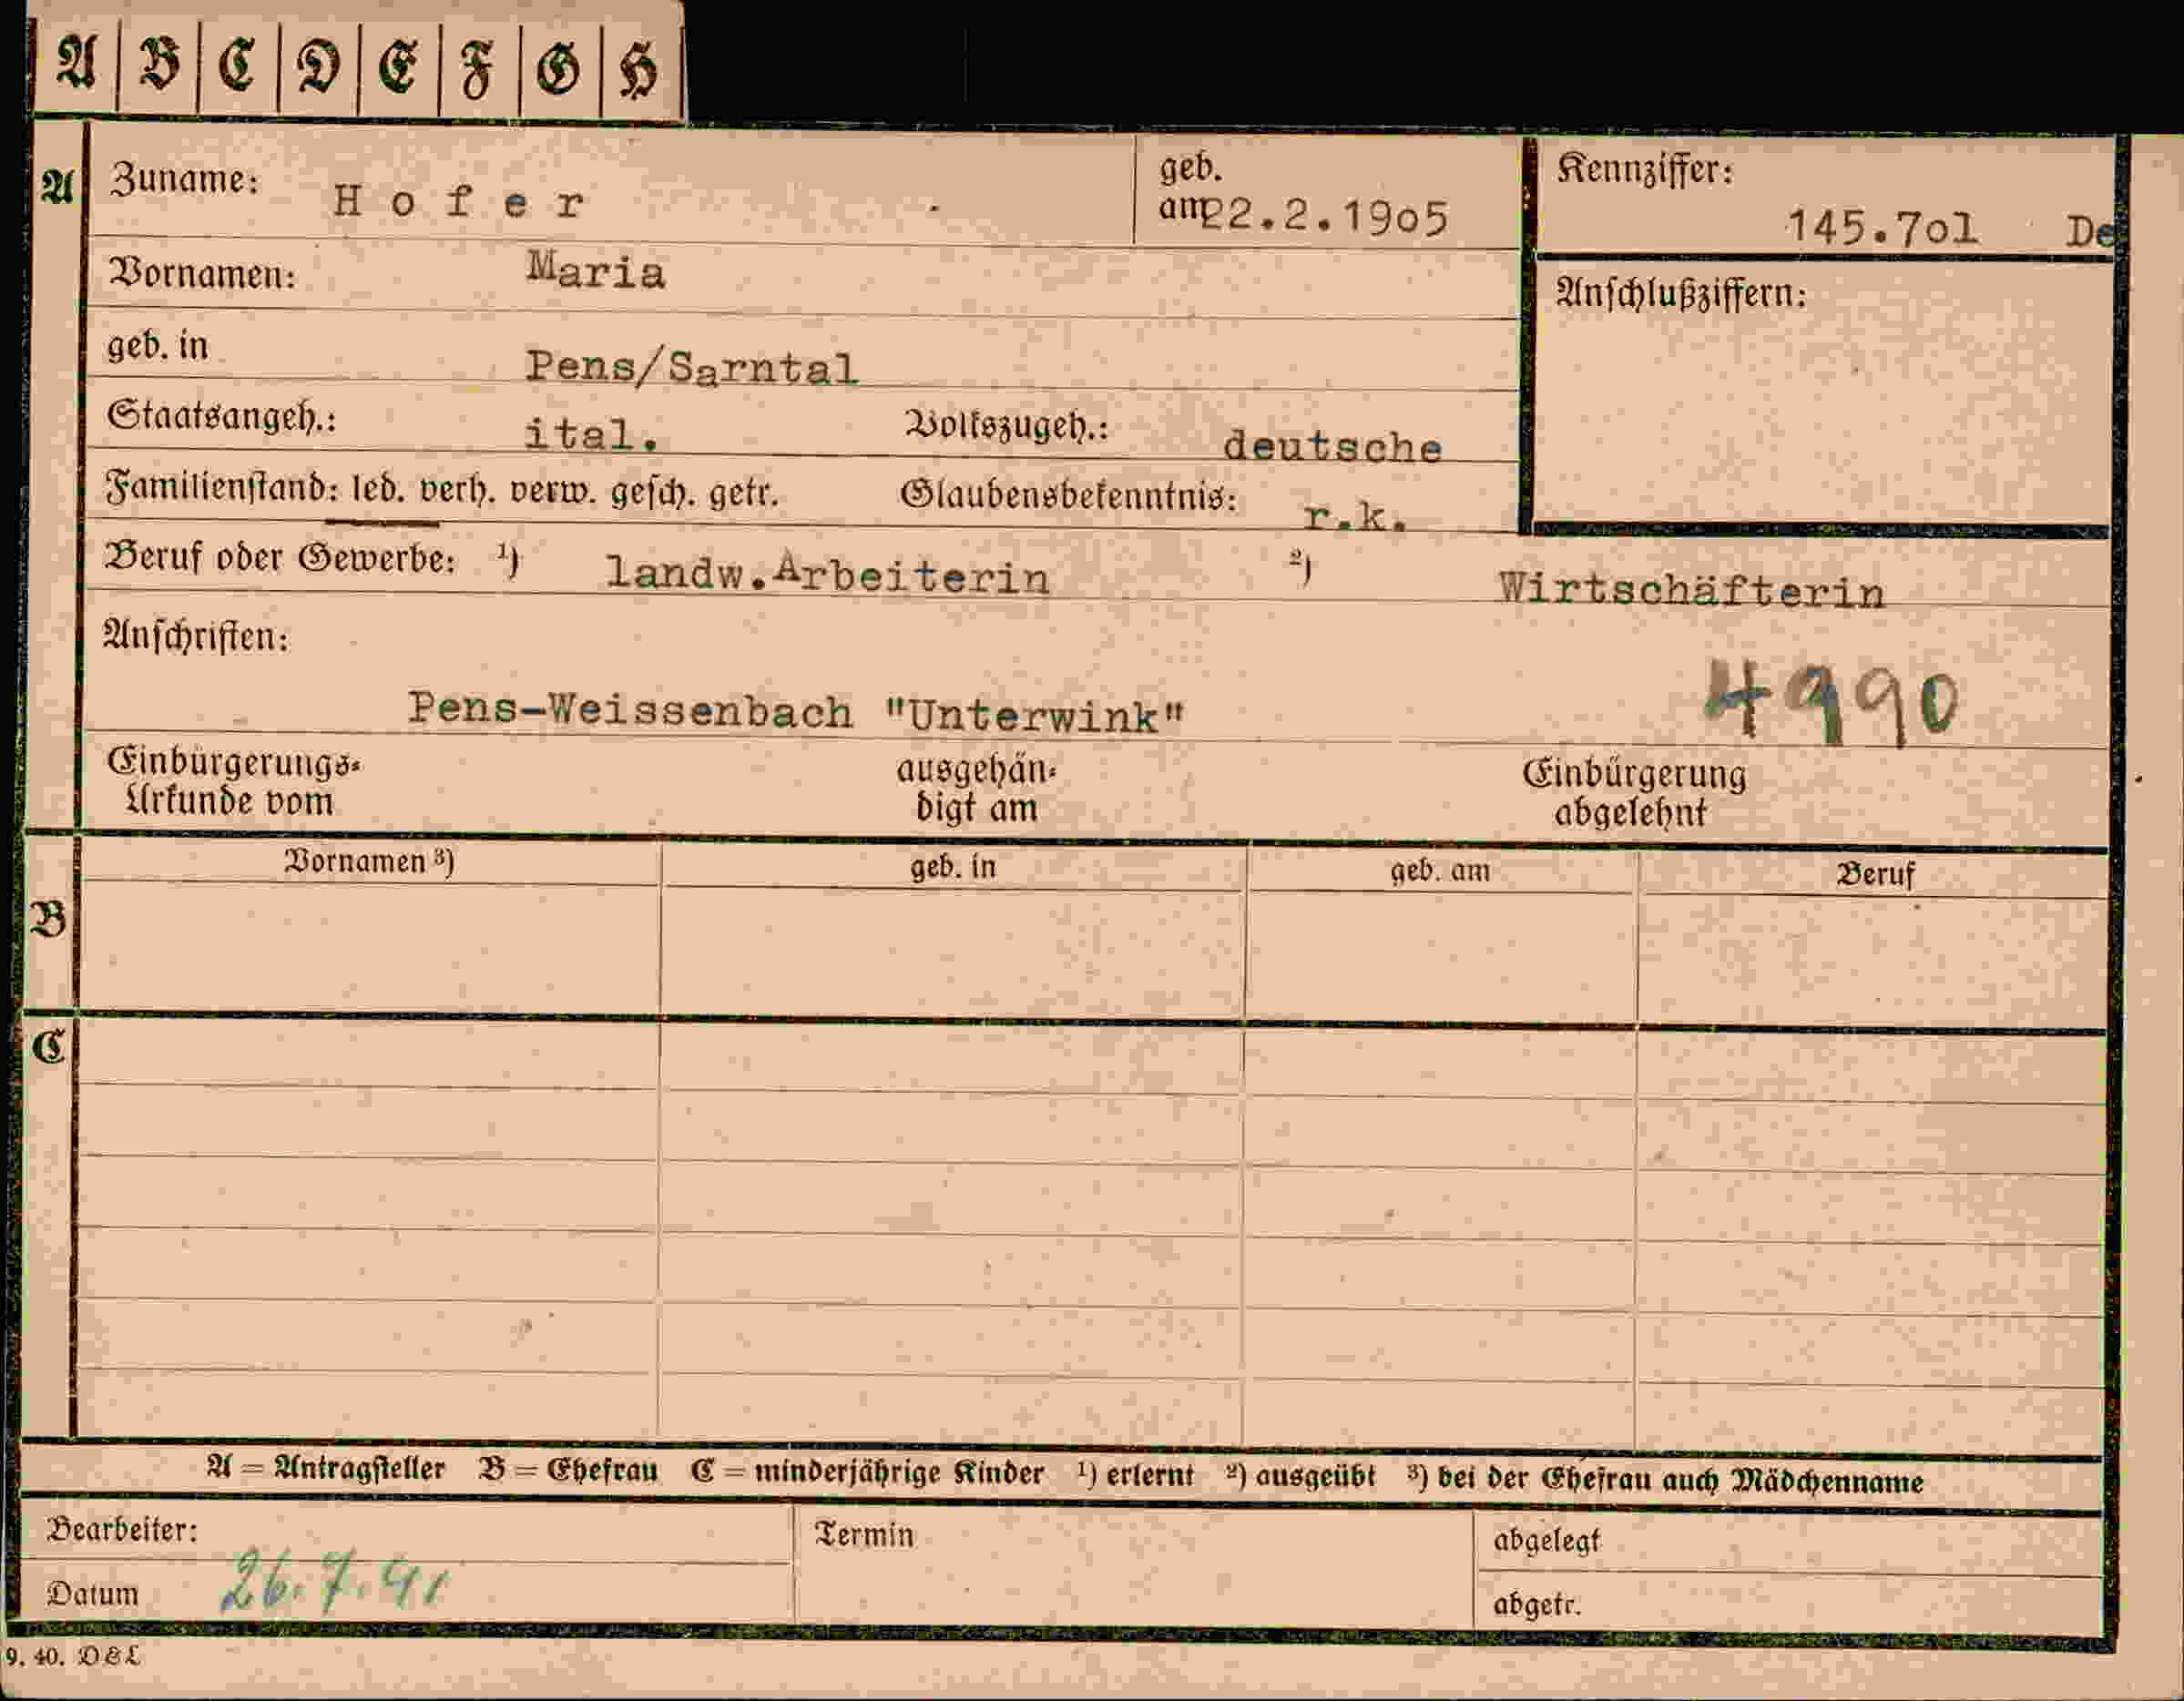 A B C D E F G H
A Zuname: Hofer geb. am 22.2.1905 Kennziffer: 145.7ol De
Vornamen: Maria Anschlußziffern:
geb. in Pens/Sarntal
Staatsangeh.: ital. Volkszugeh.: deutsche
Familienstand: led. verh. verw. gesch. getr. Glaubensbekenntnis: r.k.
Beruf oder Gewerbe: 1) landw.Arbeiterin 2) Wirtschäfterin
Anschriften:
Pens-Weissenbach "Unterwink" 4990
Einbürgerungs- ausgehän- Einbürgerung
Urkunde vom digt am abgelehnt
Vornamen 3) geb. in geb. am Beruf
B
C
A = Antragsteller B = Ehefrau C = minderjährige Kinder 1) erlernt 2) ausgeübt 3) bei der Ehefrau auch Mädchenname
Bearbeiter: Termin abgelegt
Datum 26.7.41 abgetr.
9. 40. D&L